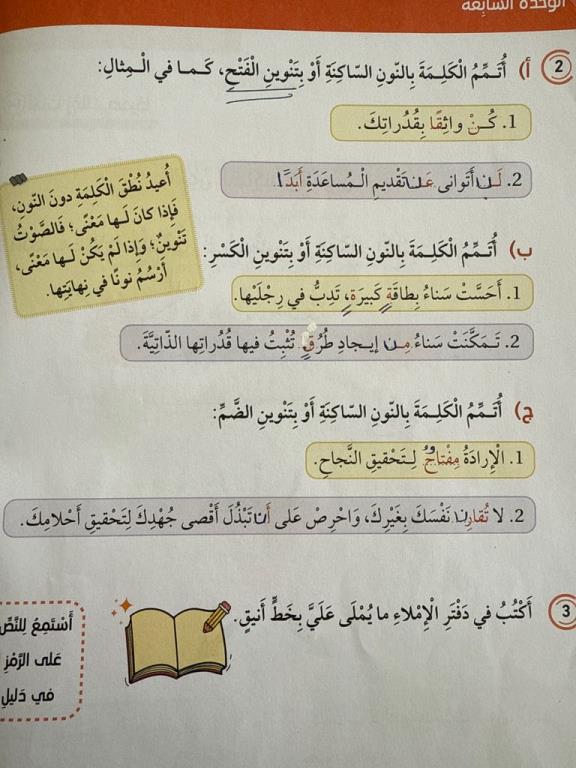 الوحدة السابعة
2 أ) أُتَمِّمُ الْكَلِمَةَ بِالنّونِ السّاكِنَةِ أَوْ بِتَنْوينِ الْفَتْحِ، كَما في الْمِثالِ:
1. كُنْ واثِقًا بِقُدُراتِكَ.
2. لَن أَتَوانى عَن تَقْديمِ الْمُساعَدَةِ أَبَدًا.
أُعيدُ نُطْقَ الْكَلِمَةِ دونَ النّونِ،
فَإِذا كانَ لَها مَعْنًى؛ فَالصَّوْتُ
تَنْوينٌ؛ وَإِذا لَمْ يَكُنْ لَها مَعْنًى،
أَرْسُمُ نونًا في نِهايَتِها.
ب) أُتَمِّمُ الْكَلِمَةَ بِالنّونِ السّاكِنَةِ أَوْ بِتَنْوينِ الْكَسْرِ:
1. أَحَسَّتْ سَناءُ بِطاقَةٍ كَبيرَةٍ، تَدِبُّ في رِجْلَيْها.
2. تَمَكَّنَتْ سَناءُ مِن إيجادِ طُرُقٍ تُثْبِتُ فيها قُدُراتِها الذّاتِيَّةَ.
ج) أُتَمِّمُ الْكَلِمَةَ بِالنّونِ السّاكِنَةِ أَوْ بِتَنْوينِ الضَّمِّ:
1. الْإِرادَةُ مِفْتاحٌ لِتَحْقيقِ النَّجاحِ.
2. لا تُقارِن نَفْسَكَ بِغَيْرِكَ، وَاحْرِصْ عَلى أَن تَبْذُلَ أَقْصى جُهْدِكَ لِتَحْقيقِ أَحْلامِكَ.
3 أَكْتُبُ في دَفْتَرِ الْإِمْلاءِ ما يُمْلَى عَلَيَّ بِخَطٍّ أَنيقٍ.
أَسْتَمِعُ لِلنَّصِّ
عَلى الرَّمْزِ
في دَليلِ